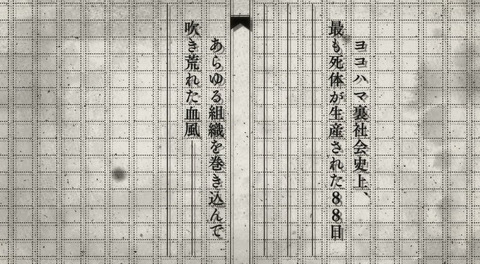 ヨコハマ裏社会史上、
最も死体が生産された８８日
あらゆる組織を巻き込んで
吹き荒れた血風――